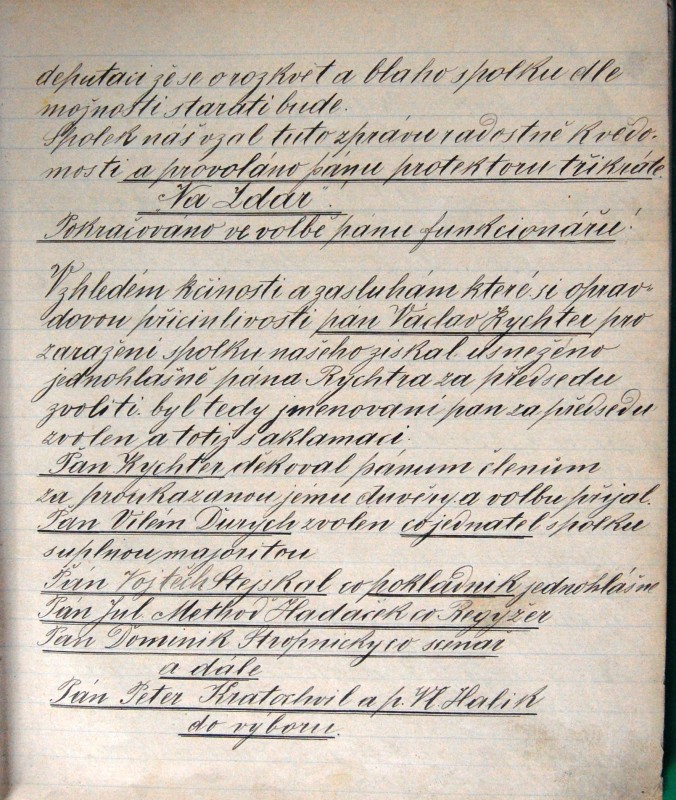 deputaci že se o rozkvět a blaho spolku dle
možnosti starati bude.
Spolek náš vzal tuto zprávu radostně k vědo-
mosti a provoláno pánu protektoru třikráte
"Na Zdar".
Pokračováno ve volbě pánu funkcionářů!
Vzhledém k činosti a zasluhám které si oprav-
dovou přicinlivosti pan Václav Rychter pro
zaražení spolku našeho ziskal usneženo
jednohlášně pána Rychtra za předsedu
zvoliti. byl tedy jmenovaní pan za předsedu
zvolen a totiž s aklamaci.
Pan Rychter děkoval pánum členům
za proukazanou jému duvěru a volbu přijal.
Pán Vilém Ďurych zvolen co jednatel spolku
s uplnou majoritou
Pán Vojtěch Stejskal co pokladnik jednohlášně
Pán Jul. Method Hladaček co Regyžér
Pan Dominik Stropnicky co scénář
a dale
Pán Peter Kratochvil a p. Vl. Halik
do vyboru.